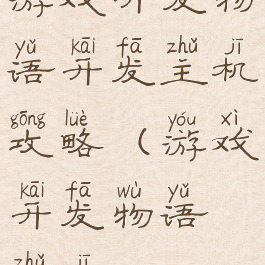 游戏开发物
yǔ kāi fā zhǔ jī
语开发主机
gōng lüè yóu xì
攻略（游戏
kāi fā wù yǔ
开发物语
zhǔ jī